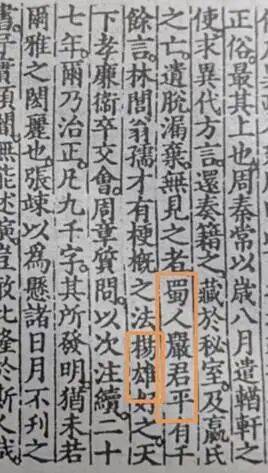 正俗最其上也。周秦常以歲八月遣輶軒之
使。求異代方言。還奏籍之。藏於秘室。及嬴氏
之亡。遺脫漏棄。無見之者。蜀人嚴君平有千
餘言。林閭翁孺才有梗槪之法。揚雄好之。天
下孝廉衞卒交會。周章質問。以次注續。二十
七年。爾乃治正。凡九千字。其所發明。猶未若
爾雅之閎麗也。張竦以爲懸諸日月不刊之
書。予實頑闇。無能述演。豈敢比隆於斯人哉